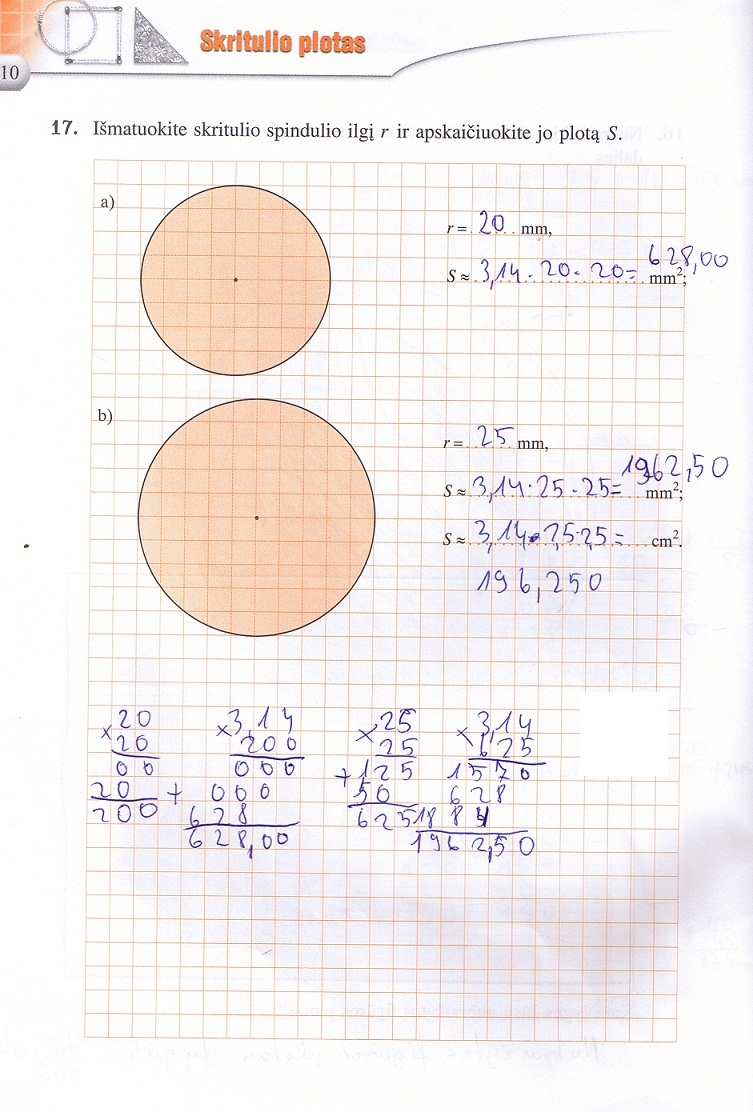 Skritulio plotas
10
17. Išmatuokite skritulio spindulio ilgį r ir apskaičiuokite jo plotą S.
a)
r = 20 mm,
S ≈ 3,14 · 20 · 20 = 628,00 mm²;
b)
r = 25 mm,
S ≈ 3,14 · 25 · 25 = 1962,50 mm²;
S ≈ 3,14 · 2,5 · 2,5 = cm².
196,250
20 3,14 25 3,14
× 20 × 200 × 25 × 625
00 000 + 125 1570
20 + 000 50 628
200 628 625 1884
628,00 1962,50